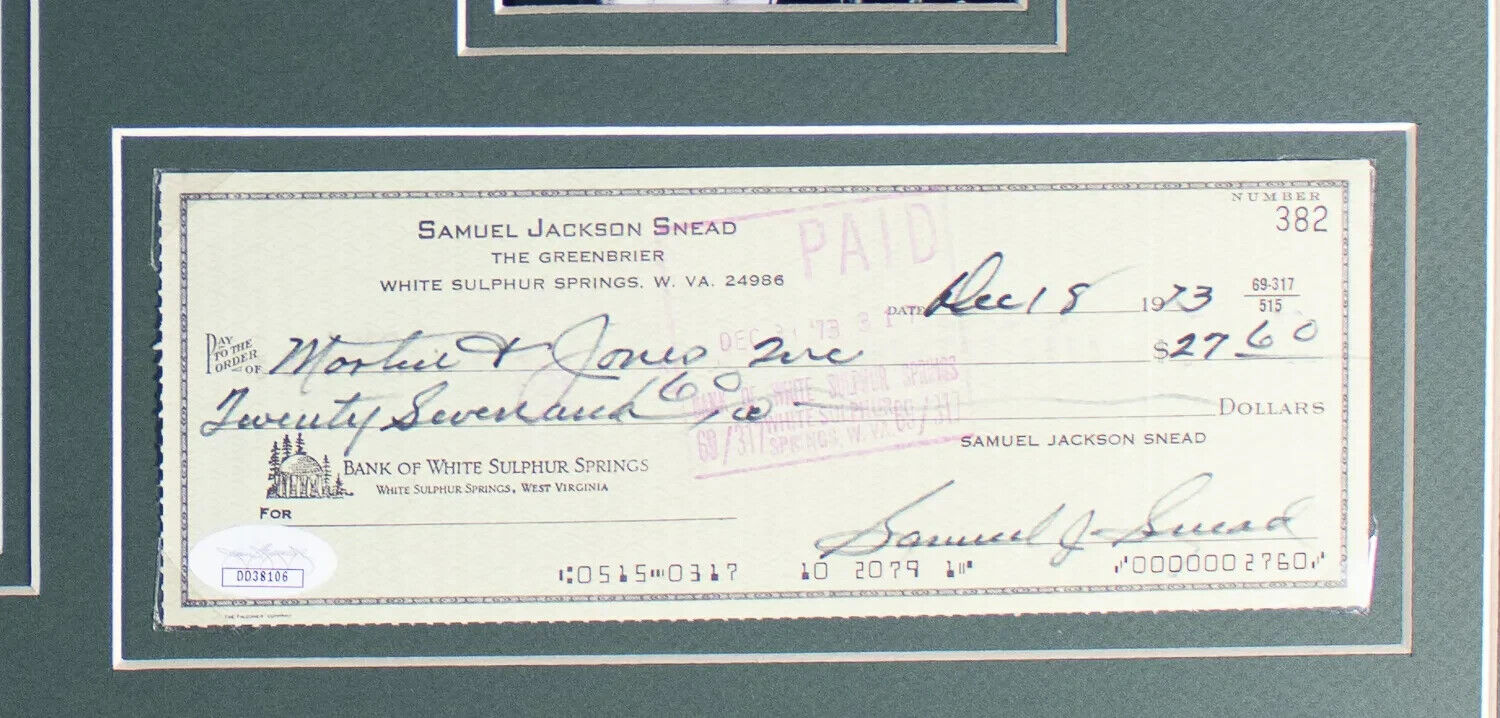 NUMBER
382
SAMUEL JACKSON SNEAD
THE GREENBRIER
WHITE SULPHUR SPRINGS, W. VA. 24986
PAID
DATE Dec 18 1973
69-317
515
DEC 31 '73
PAY TO THE ORDER OF Martin & Jones Inc $27 60
Twenty Seven and 60/100 DOLLARS
BANK OF WHITE SULPHUR SPRINGS
69/317 WHITE SULPHUR 69/317
SPRINGS, W. VA.
SAMUEL JACKSON SNEAD
BANK OF WHITE SULPHUR SPRINGS
WHITE SULPHUR SPRINGS, WEST VIRGINIA
FOR
Samuel J. Snead
DD38106
⑆0515⑉0317 10 2079 1⑈ ⑈0000002760⑈
THE FALCONER COMPANY